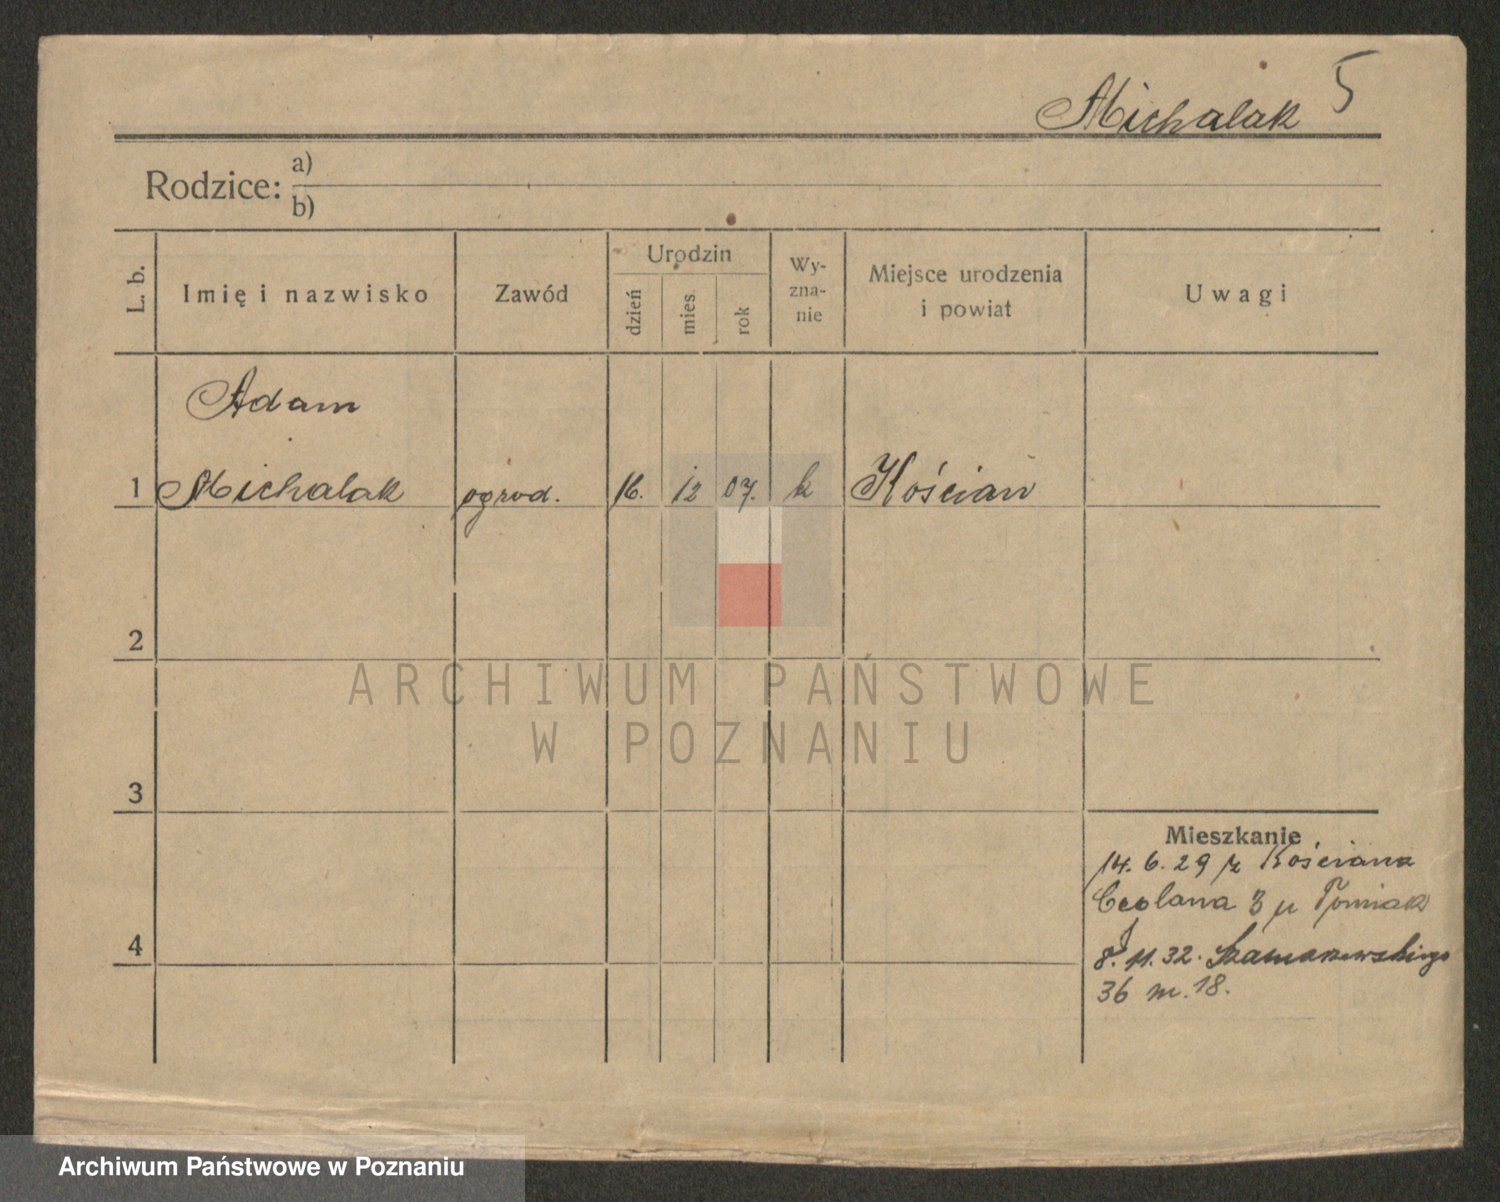 Michalak 5
Rodzice: a)
b)
L. b.
Imię i nazwisko
Zawód
Urodzin
dzień
mies.
rok
Wy-
zna-
nie
Miejsce urodzenia
i powiat
Uwagi
Adam
1 Michalak ogrod. 16. 12 07. k Kościan
2
ARCHIWUM PAŃSTWOWE
W POZNANIU
3
Mieszkanie
14. 6. 29 z Kościana
3 u
4
8. 11. 32. Szamarzewskiego
36 m. 18.
Archiwum Państwowe w Poznaniu